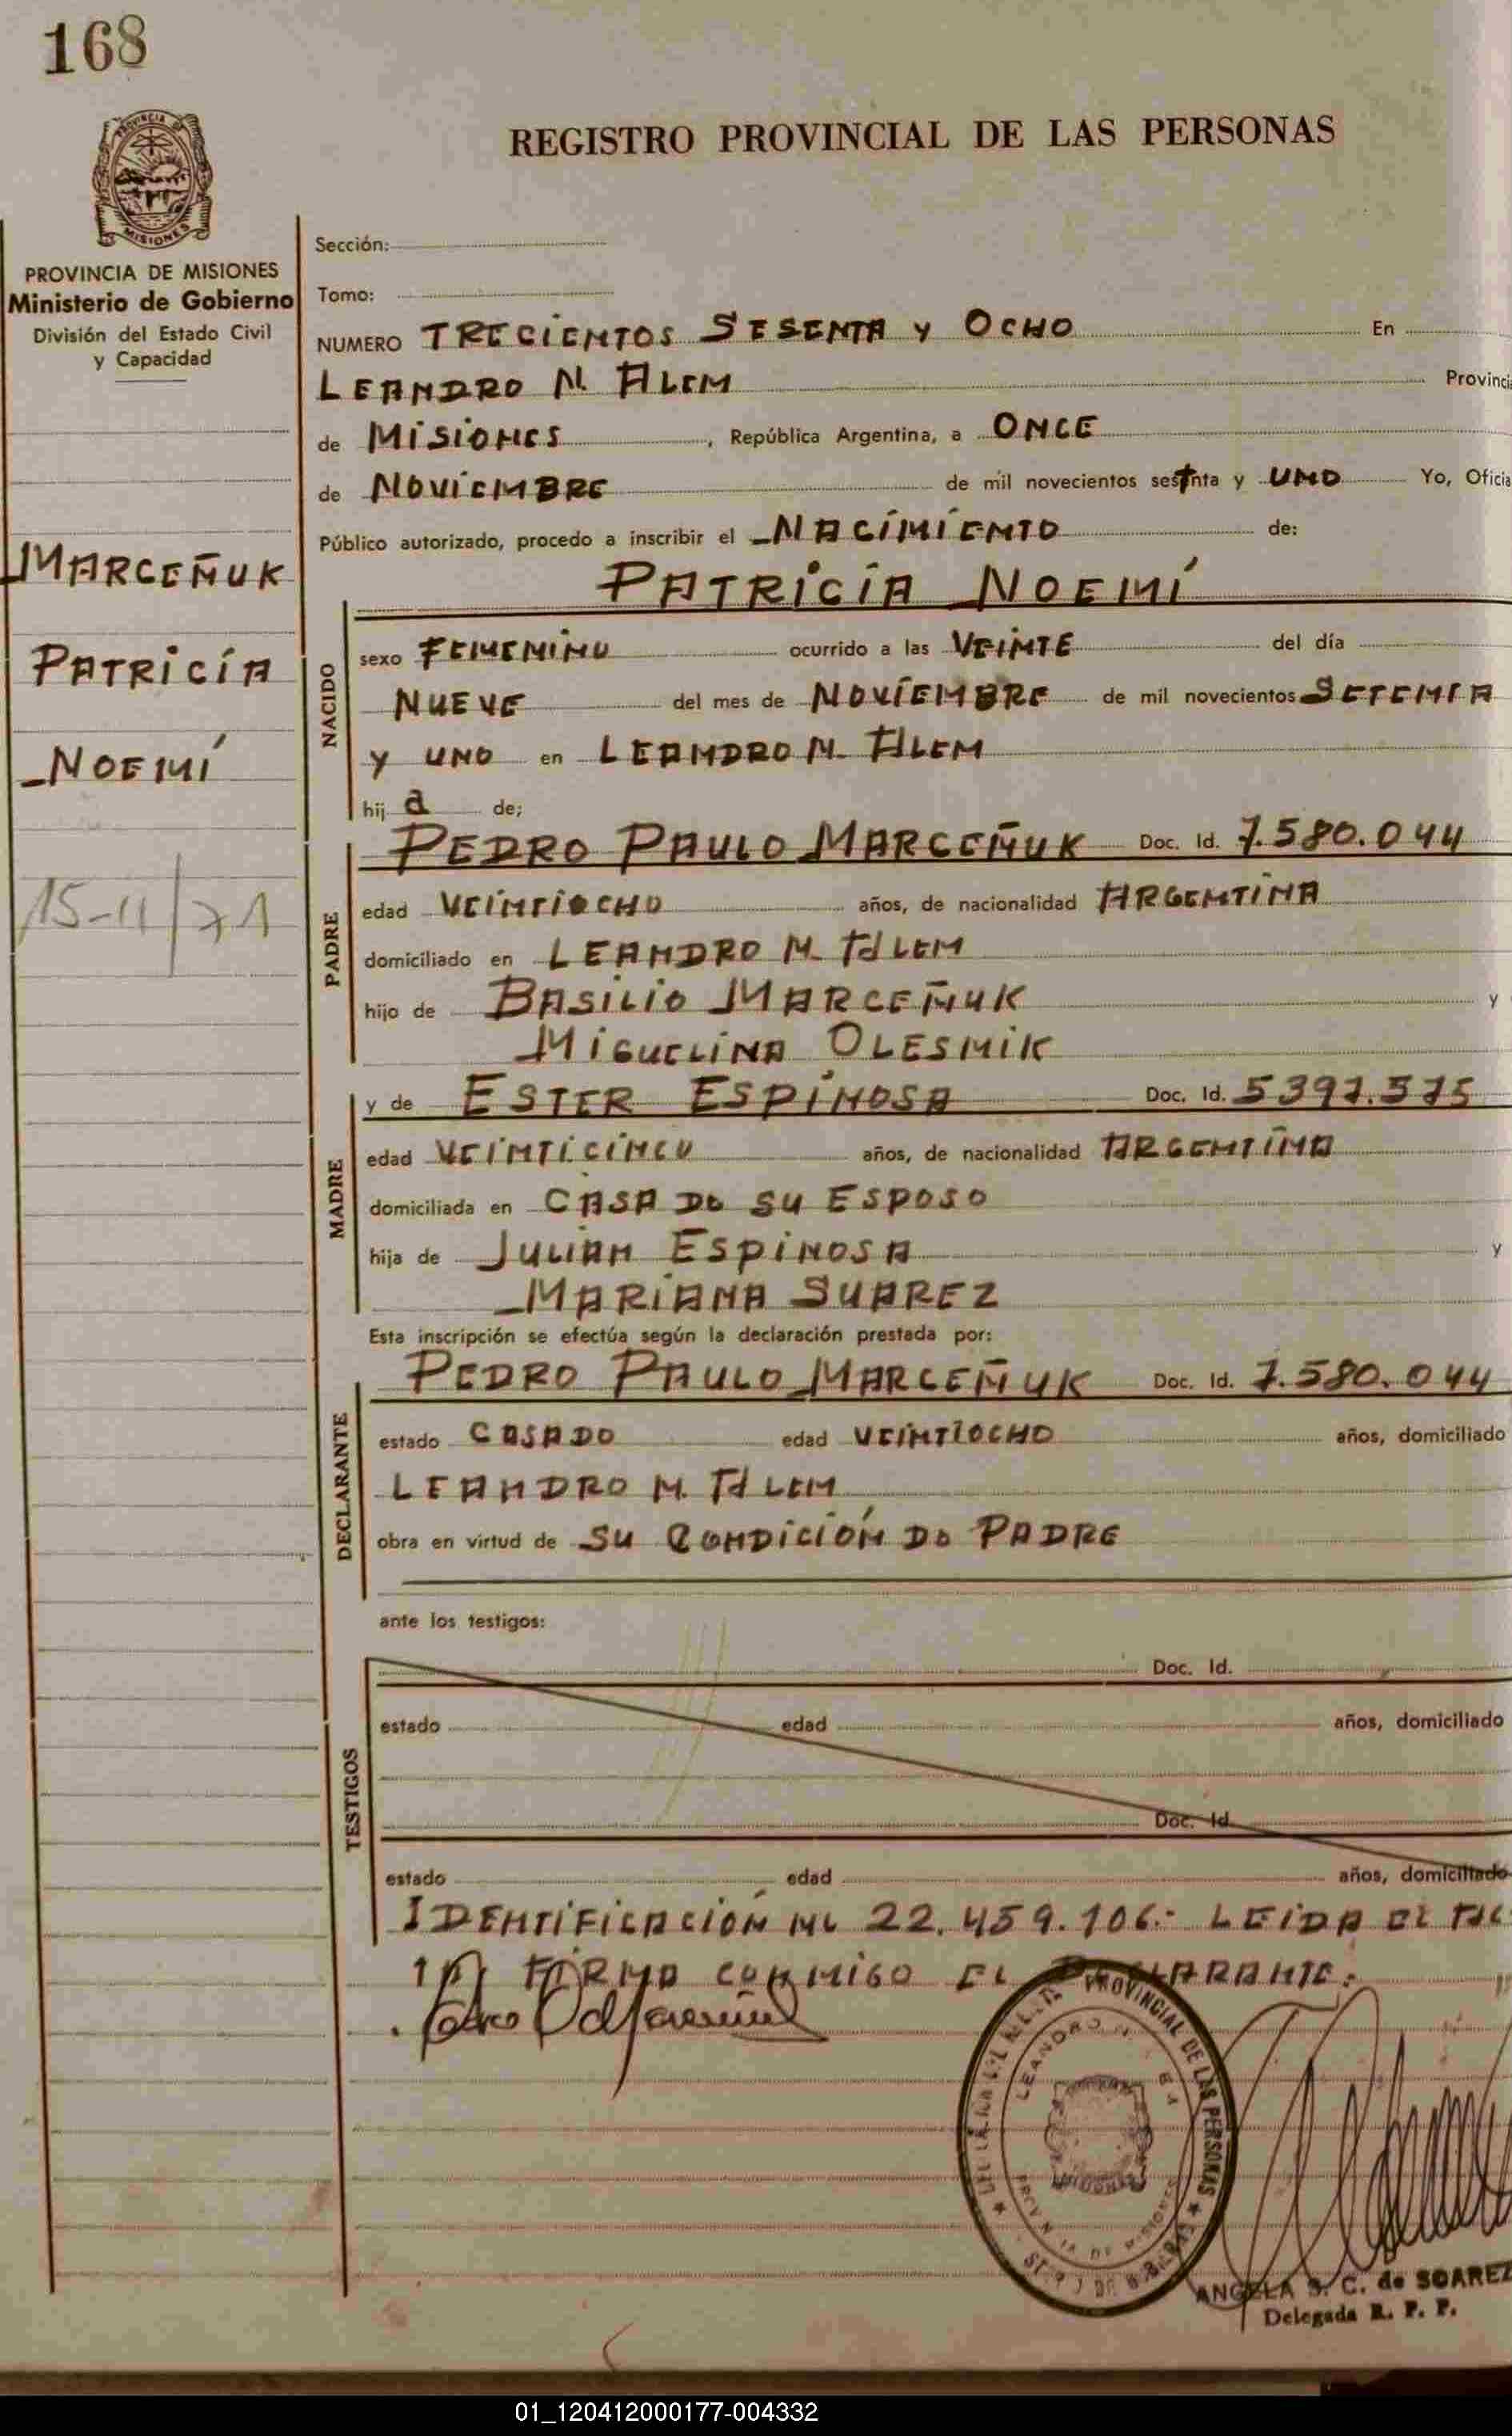 168
REGISTRO PROVINCIAL DE LAS PERSONAS
PROVINCIA DE MISIONES
Ministerio de Gobierno
División del Estado Civil
y Capacidad
MARCEÑUK
PATRICIA
NOEMÍ
15-11/71
Sección:
Tomo:
NUMERO TRECIENTOS SESENTA y OCHO En
LEANDRO N. ALEM Provinci
de MISIONES, República Argentina, a ONCE
de NOVIEMBRE de mil novecientos setenta y UNO Yo, Oficia
Público autorizado, procedo a inscribir el NACIMIENTO de:
PATRICIA NOEMÍ
NACIDO
sexo FEMENINO ocurrido a las VEINTE del día
NUEVE del mes de NOVIEMBRE de mil novecientos SETENTA
y UNO en LEANDRO N. ALEM
hij a de;
PEDRO PAULO MARCEÑUK Doc. Id. 7.580.044
PADRE
edad VEINTIOCHO años, de nacionalidad ARGENTINA
domiciliado en LEANDRO N. ALEM
hijo de BASILIO MARCEÑUK y
MIGUELINA OLESNIK
y de ESTER ESPINOSA Doc. Id. 5397.575
MADRE
edad VEINTICINCO años, de nacionalidad ARGENTINA
domiciliada en CASA DE SU ESPOSO
hija de JULIAN ESPINOSA y
MARIANA SUAREZ
Esta inscripción se efectúa según la declaración prestada por:
PEDRO PAULO MARCEÑUK Doc. Id. 7.580.044
DECLARANTE
estado CASADO edad VEINTIOCHO años, domiciliado
LEANDRO N. ALEM
obra en virtud de SU CONDICIÓN DE PADRE
ante los testigos:
TESTIGOS
Doc. Id.
estado edad años, domiciliado
Doc. Id
estado edad años, domiciliado
IDENTIFICACIÓN NC 22.459.106.- LEIDA EL AC
TA, FIRMA CONMIGO EL DECLARANTE.
PROVINCIAL DE LAS PERSONAS
LEANDRO N.
PROVINCIA DE MISIONES
ANGELA S. C. de SOAREZ
Delegada R. P. P.
01_120412000177-004332